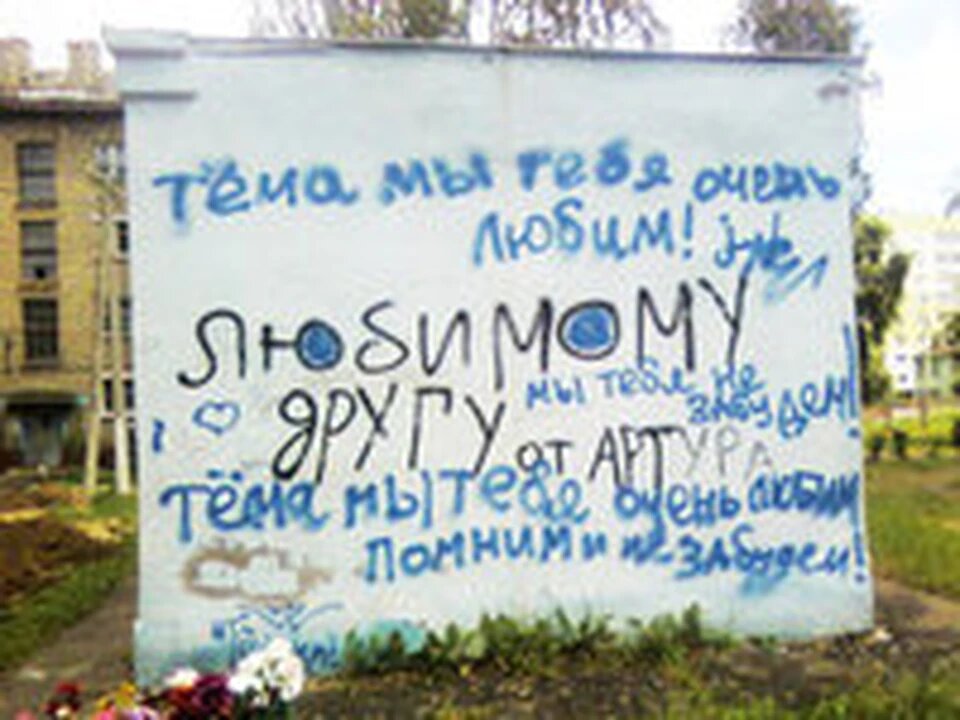 Тёма мы тебя очень
любим!
ЛЮБИМОМУ
ДРУГУ
мы тебя не
забудем!
от АРТУРА
Тёма мы тебя очень любим
помним и не забудем!